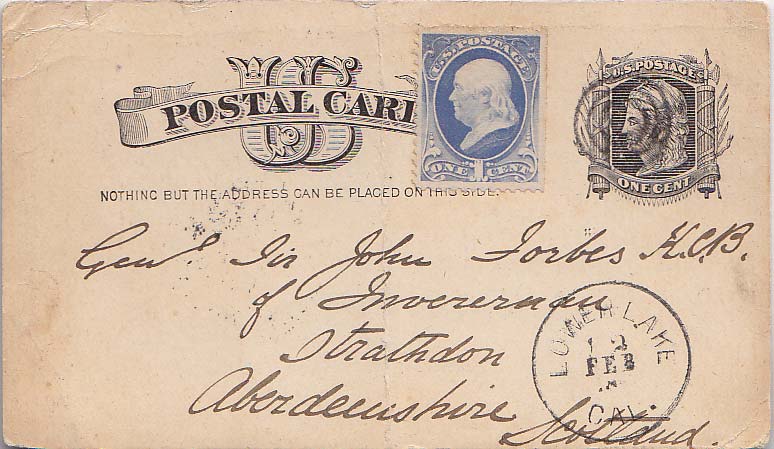 US
POSTAL CAR
NOTHING BUT THE ADDRESS CAN BE PLACED ON THIS SIDE.
U.S. POSTAGE
ONE 1 CENT
U.S. POSTAGE
ONE CENT
Genl. Sir John Forbes K.C.B.
of Inverernan
Strathdon
Aberdeenshire
Scotland.
LOWER LAKE
12
FEB
CAL.